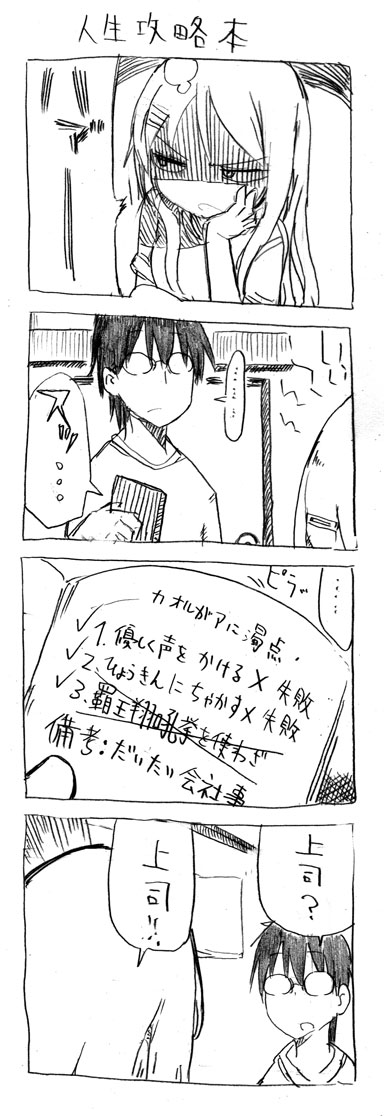 人生攻略本
ア゛ー
……
スッ…
ピラッ
……
カオルがアに濁点.
✓1.優しく声をかける×失敗
✓2.ひょうきんにちゃかす×失敗
✓3.覇王翔吼拳を使わざ
備考:だいたい会社事
上司?
上司!!